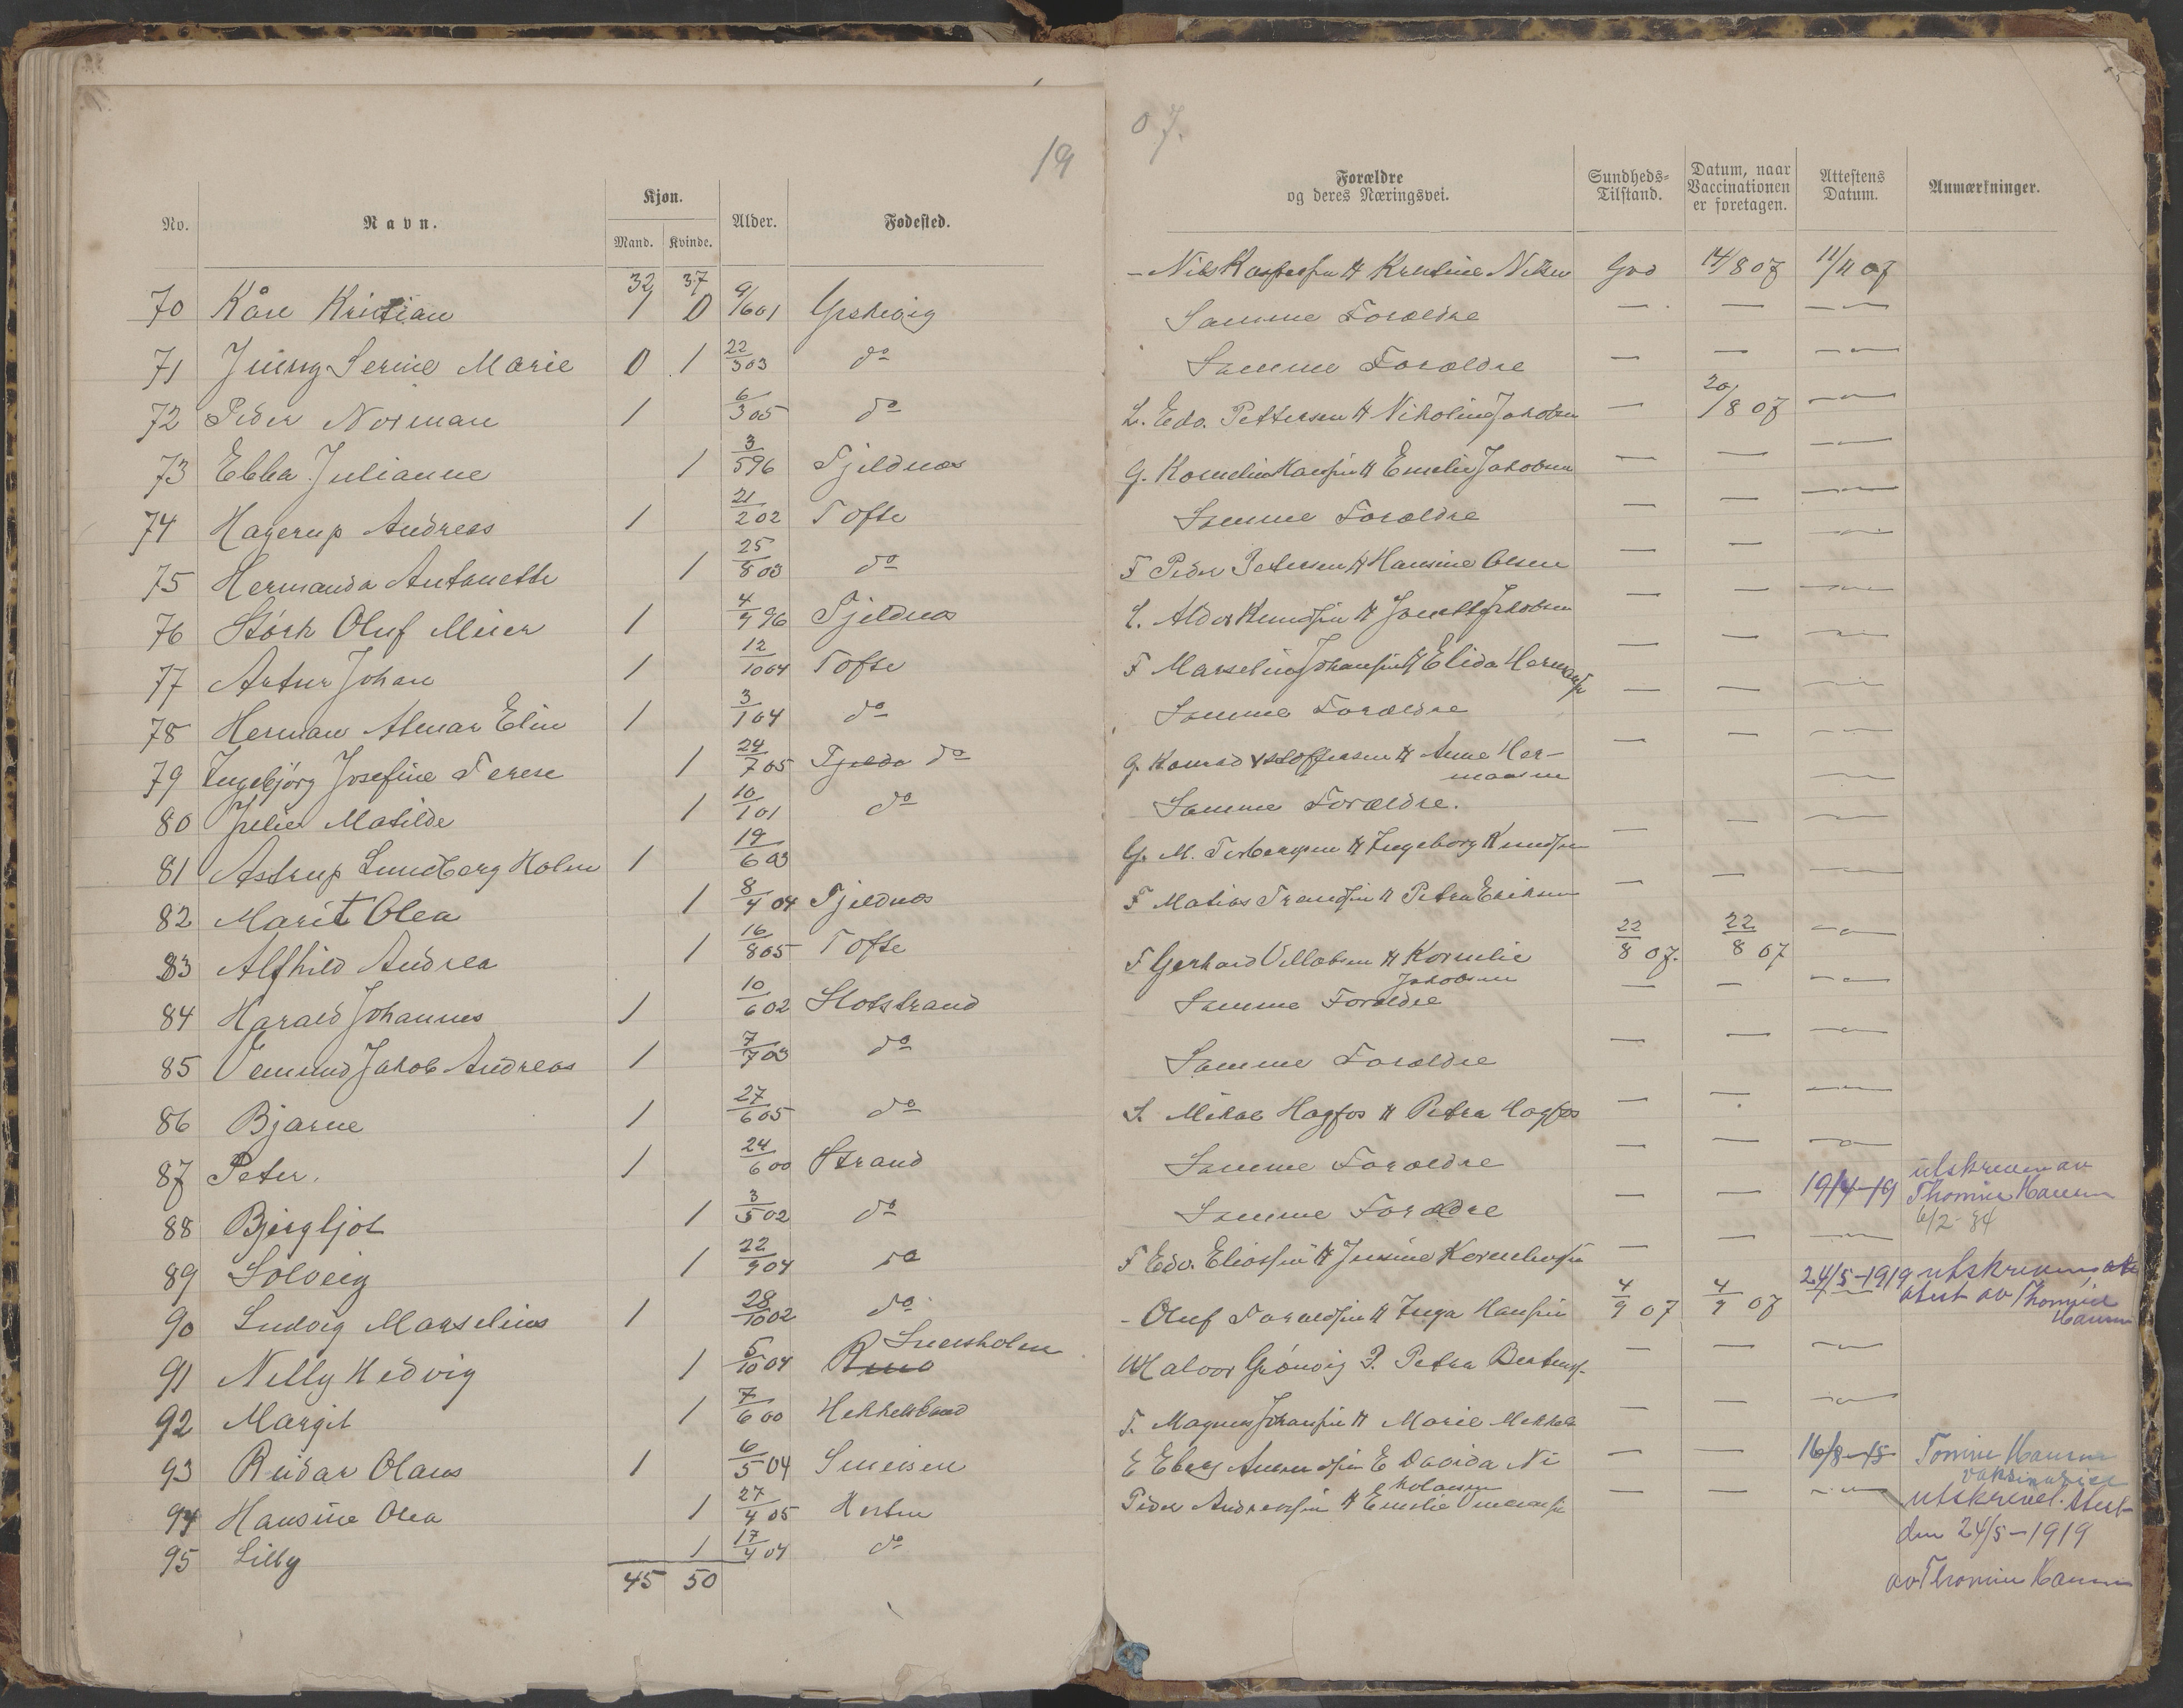 19
07.
No. Navn. Kjøn. Mand. Kvinde. Alder. Fødested.
32 37
70 Kåre Kristian 1 0 9/6 01 Grskvig
71 Jenny Serine Marie 0 1 22/3 03 do
72 Peder Norman 1 6/3 05 do
73 Ebba Julianne 1 3/5 96 Tjeldnes
74 Hagerup Andreas 1 21/2 02 Tofte
75 Hermanda Antonette 1 25/8 03 do
76 Størk Oluf Meier 1 4/9 96 Tjeldnes
77 Artur Johan 1 12/10 04 Tofte
78 Herman Almar Elin 1 3/1 04 do
79 Ingebjørg Josefine Terese 1 24/7 05 do
80 Julie Matilde 1 10/1 01 do
81 Astrup Lundberg Holm 1 19/6 03
82 Marit Olea 1 8/4 04 Tjeldnes
83 Alfhild Andrea 1 16/8 05 Tofte
84 Harald Johannes 1 10/6 02 Slotstrand
85 Vemund Jakob Andreas 1 7/7 03 do
86 Bjarne 1 27/6 05 do
87 Peter. 1 24/6 00 Strand
88 Bjergljot 1 3/5 02 do
89 Solveig 1 22/9 04 do
90 Ludvig Marselius 1 28/10 02 do
91 Nelly Hedvig 1 5/10 04 Smedsholm
92 Margit 1 7/6 00 Hekkelstrand
93 Reidar Olaus 1 6/5 04
94 Hansine Olea 1 27/4 05
95 Lilly 1 17/4 04 do
45 50
Forældre og deres Næringsvei. Sundheds-Tilstand. Datum, naar Vaccinationen er foretagen. Attestens Datum. Anmærkninger.
- Nils Kaspersen H Kristine Nilsen God 14/8 07 11/11 07
Samme Forældre — — —
Samme Forældre — — —
L. Edv. Pettersen H Nikoline Jakobsen — 20/8 07 —
G. Kornelius Hansen H Emelie Jakobsen — — —
Samme Forældre — — —
F Peder Petersen H Hansine Olsen — — —
Knudsen H Jakobsen — — —
F Marselius Johansen H Elida Hermansen — — —
Samme Forældre — — —
G. Konrad Kristoffersen H Anna Her-
mansen — — —
Samme Forældre.
G. M. Torbergsen H Ingeborg Knudsen — — —
F Matias Frandsen H Petra Eriksen — — —
F Gerhard Villabsen H Kornelie 22/8 07. 22/8 07 —
Jakobsen
Samme Forældre — — —
Samme Forældre — — —
S. Mikal Hagfos H Petra Hagfos — — —
Samme Forældre — — —
Samme Forældre — — 19/4-19 utskreven av
Thomine Hansen
6/2-34
F Edv. Eliassen H Jensine Korneliussen — — —
- Oluf Haraldsen H Inga Hansen 4/9 07 4/9 07 24/5-1919 utskreven
atest av Thomine
Hansen
Halvor Grönvig P. Petra Berteus. — — —
F. Magnus Johansen H Marie Mikkels — — —
E Andersen E Davida Ni
kolaisen — — 16/8-15 Tomine Hansen
vaksinatrise
Peder Andreassen H Emelie — — — utskrevet. Atest
den 24/5-1919
av Thomine Hansen